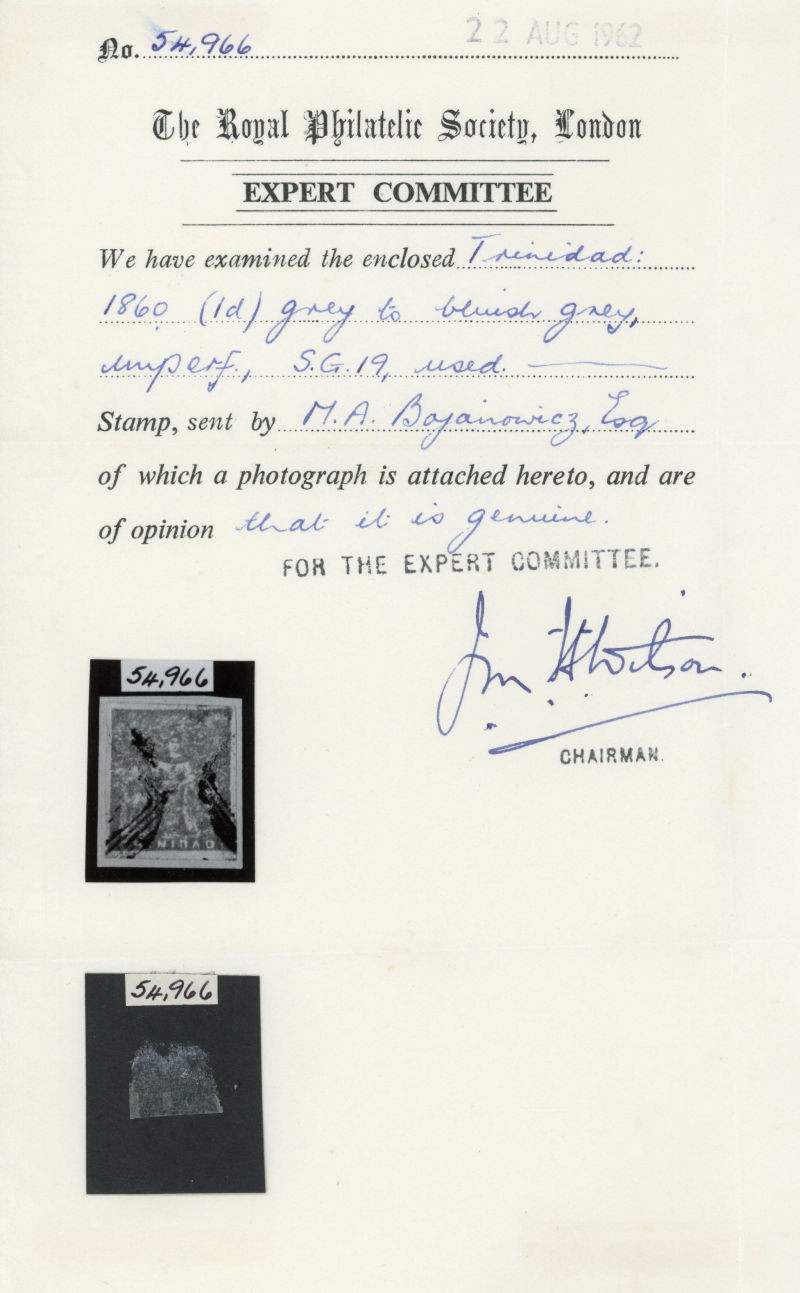 No. 54,966
22 AUG 1962
The Royal Philatelic Society, London
EXPERT COMMITTEE
We have examined the enclosed Trinidad:
1860 (1d) grey to bluish grey,
imperf., S.G. 19, used.
Stamp, sent by M.A. Bojanowicz, Esq
of which a photograph is attached hereto, and are
of opinion that it is genuine.
FOR THE EXPERT COMMITTEE.
Wilson.
CHAIRMAN.
54,966
NIDAD
54,966